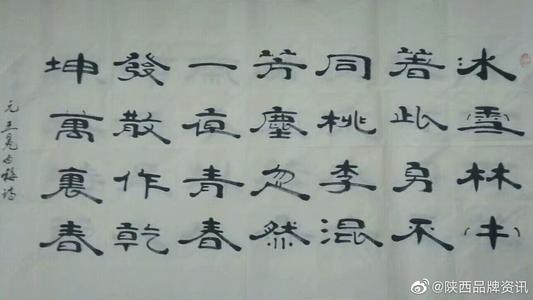 冰雪林中
著此身不
同桃李混
芳塵忽然
一夜青春
發散作乾
坤萬裏春
元王冕白梅诗
@陕西品牌资讯